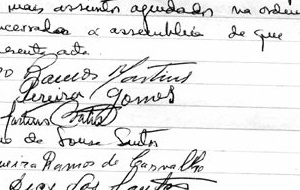 mais assuntos agendados na ordem
ncerrados a assembleia de que
resente ata
Ramos Martins
Pereira Gomes
Martins
de Sousa Santos
ueira Ramos de Carvalho
Dias dos Santos